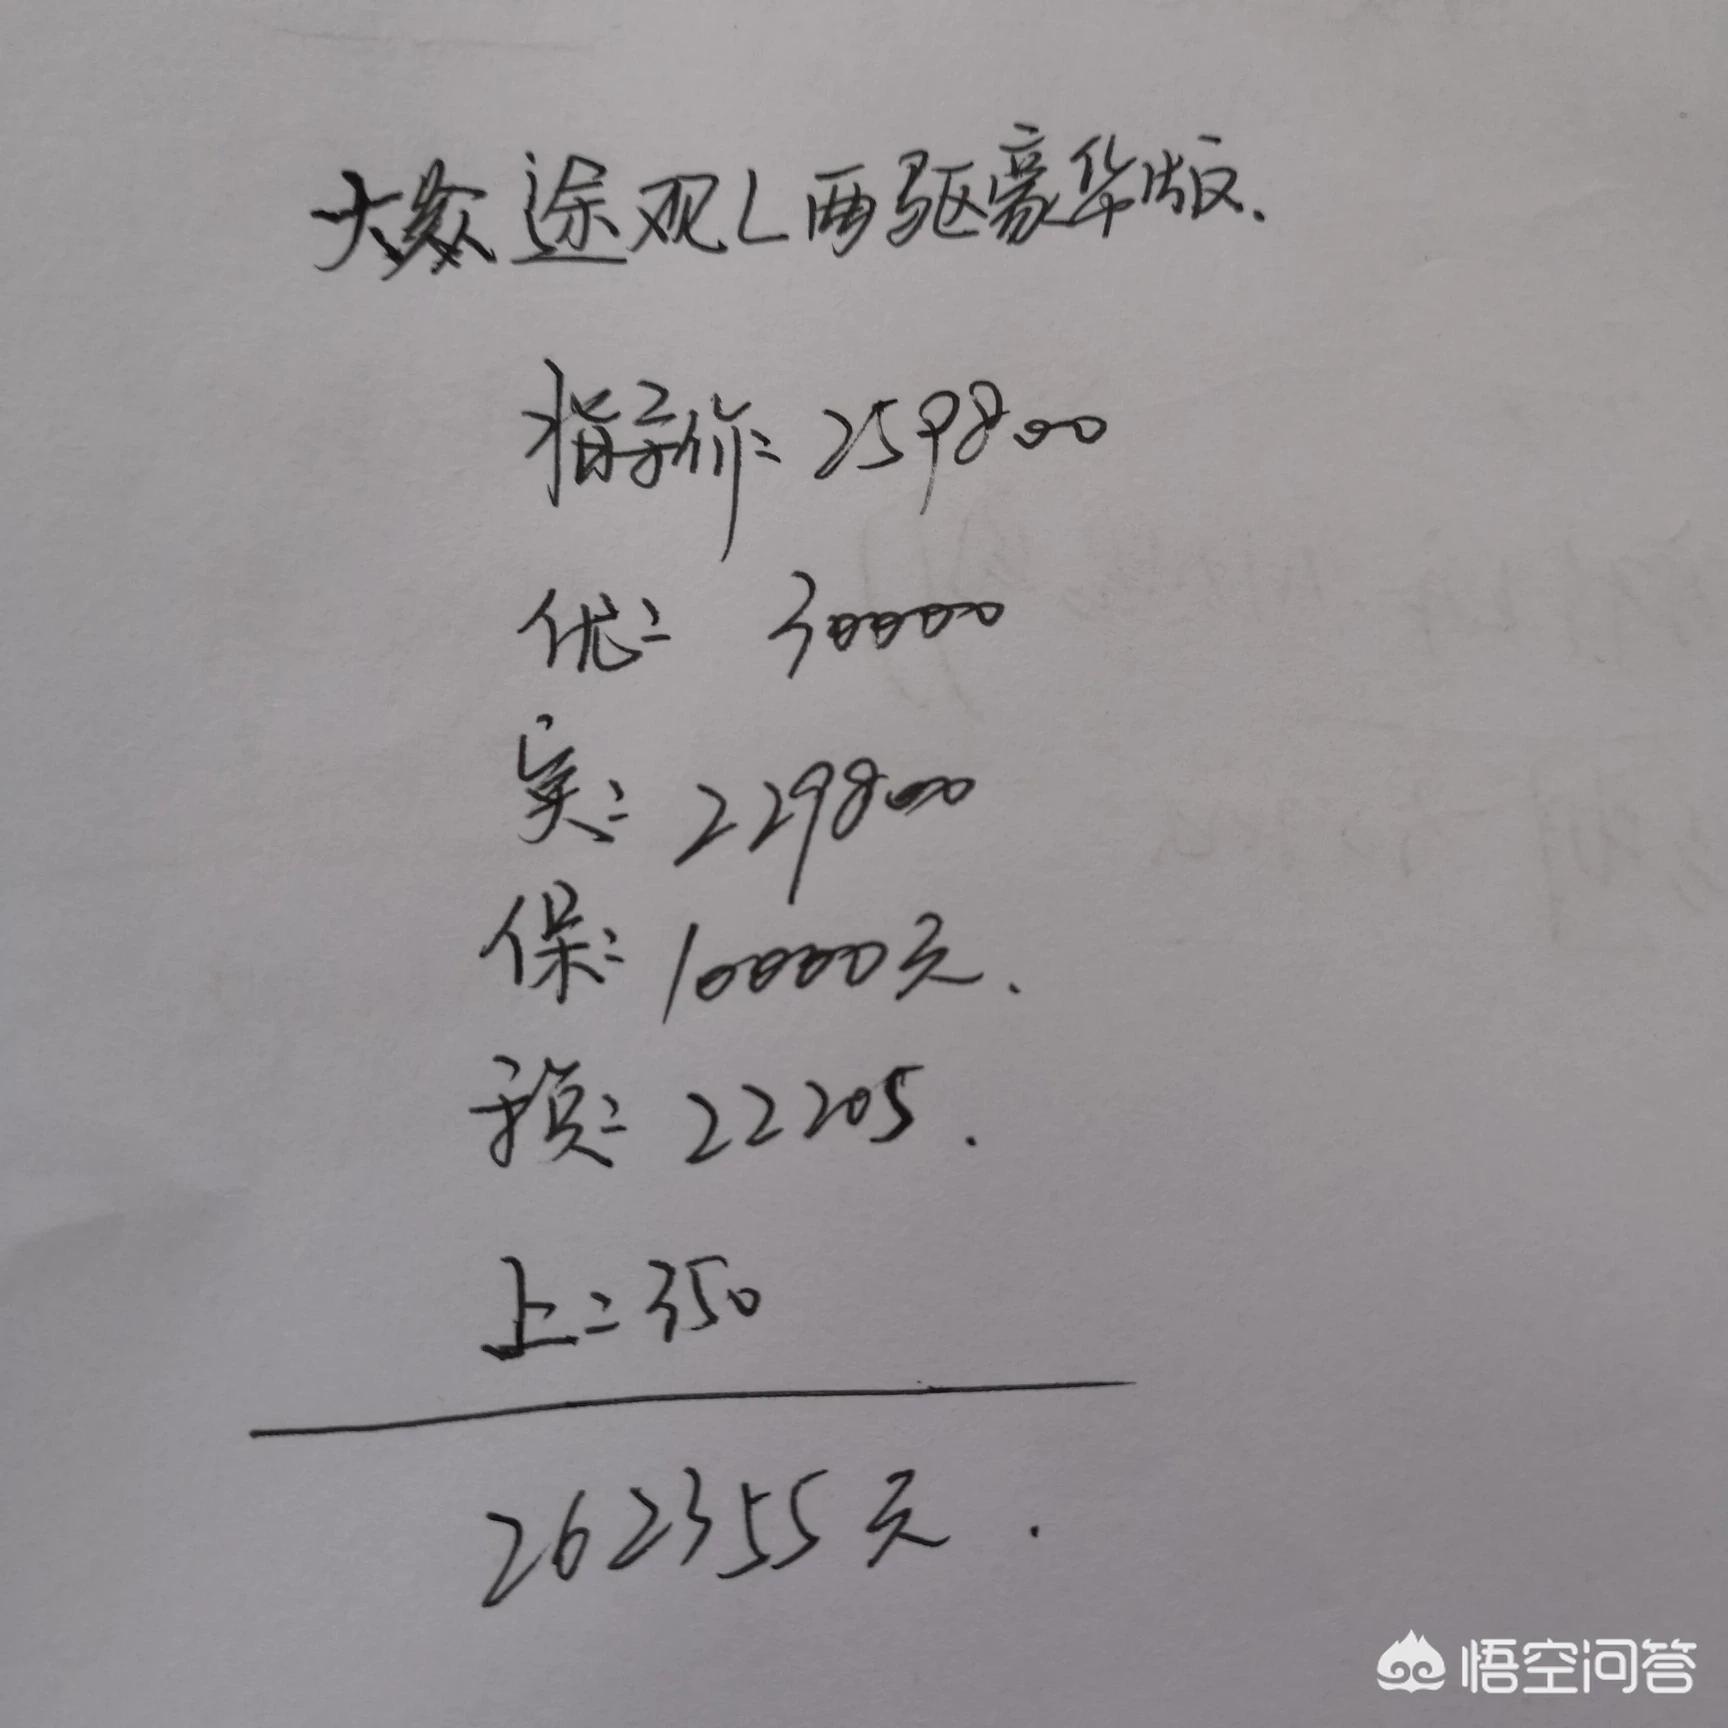 大众途观L两驱豪华版.
指导价:259800
优:30000
实:229800
保:10000元.
预:22205.
上:350
262355元.
悟空问答